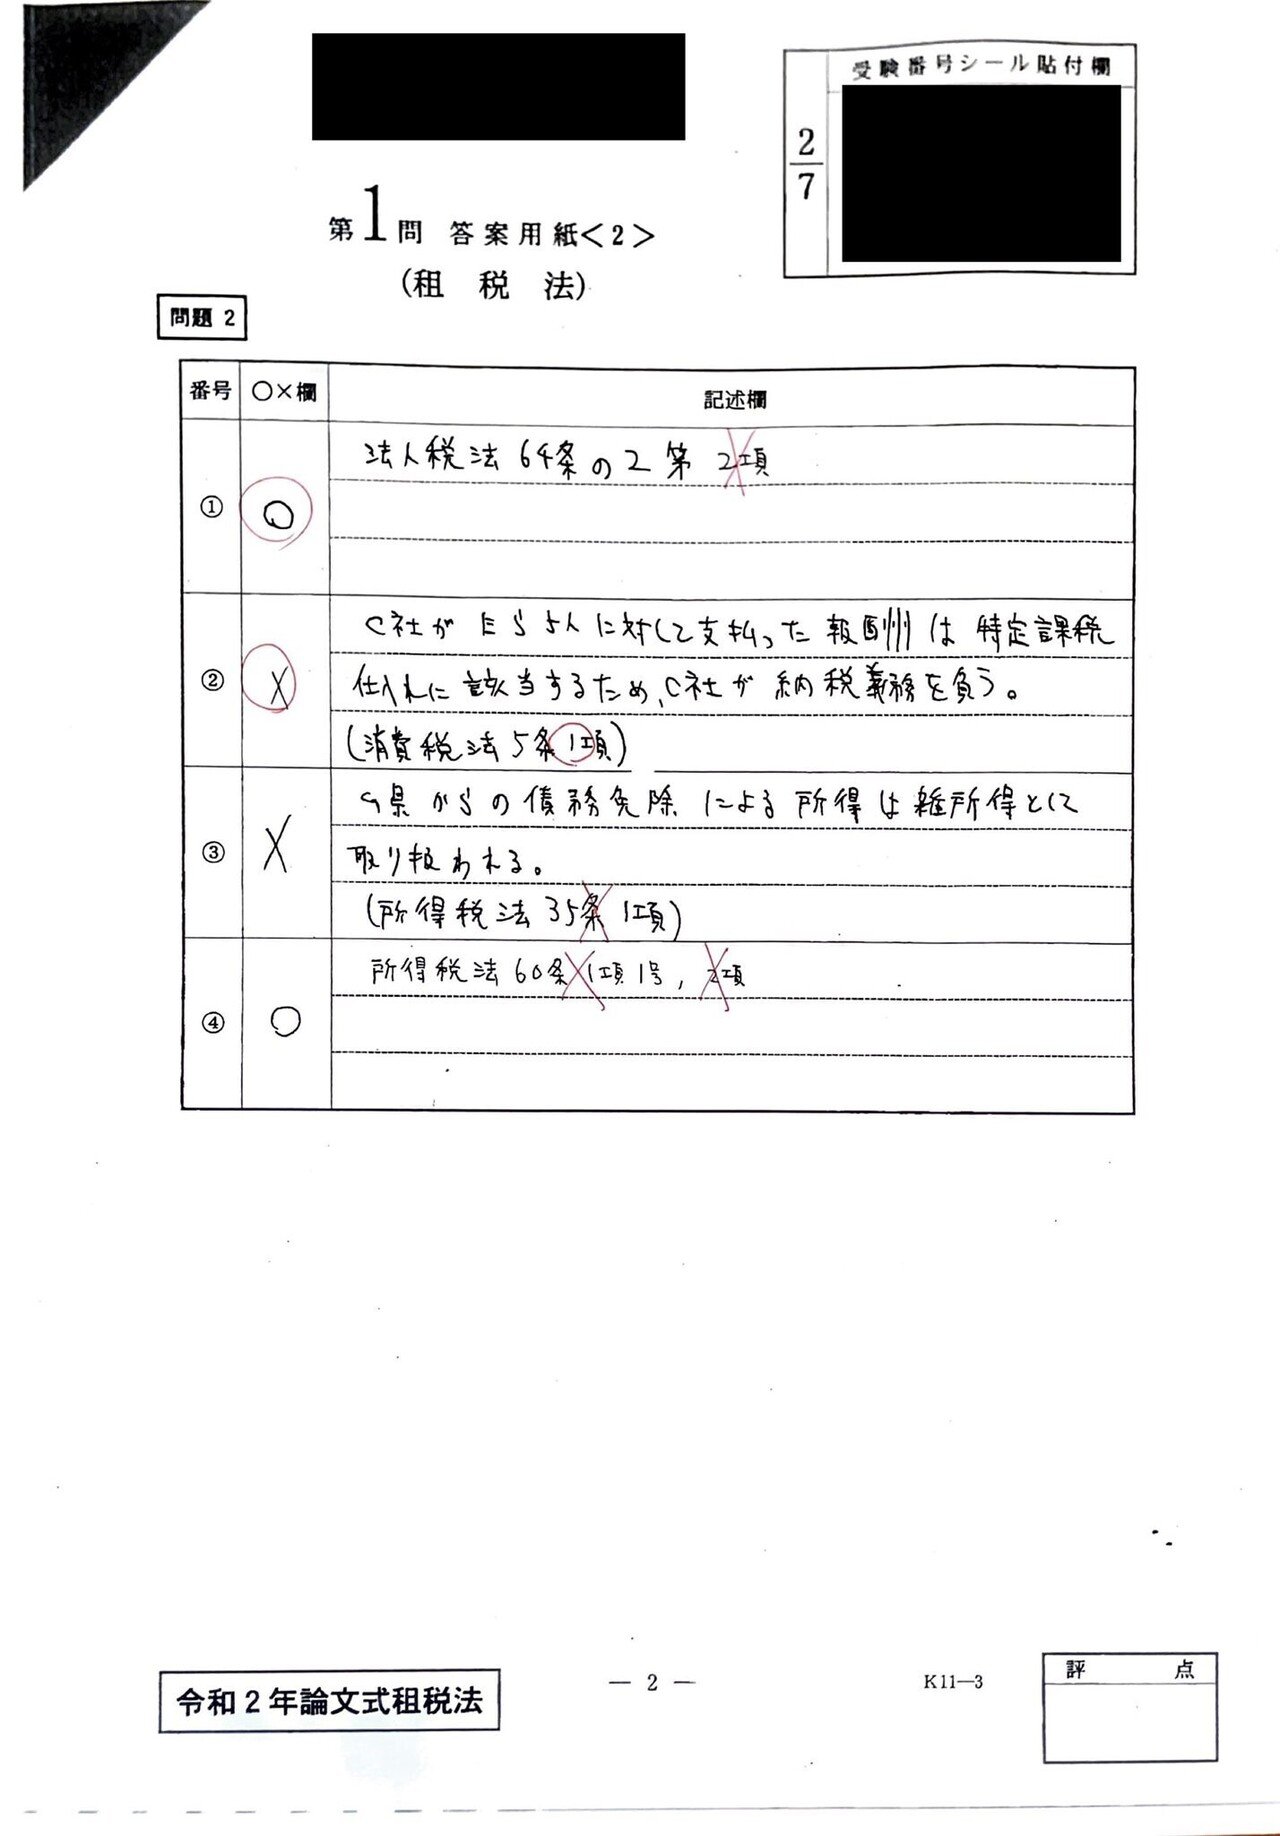 受験番号シール貼付欄
2/7
第1問 答案用紙<2>
(租税法)
問題 2
番号 ○×欄 記述欄
① ○ 法人税法64条の2第2項
② × C社がEら5人に対して支払った報酬は特定課税
仕入れに該当するため、C社が納税義務を負う。
(消費税法5条1項)
③ × G県からの債務免除による所得は雑所得として
取り扱われる。
(所得税法35条1項)
④ ○ 所得税法60条1項1号, 2項
令和2年論文式租税法
― 2 ―
K11―3
評点